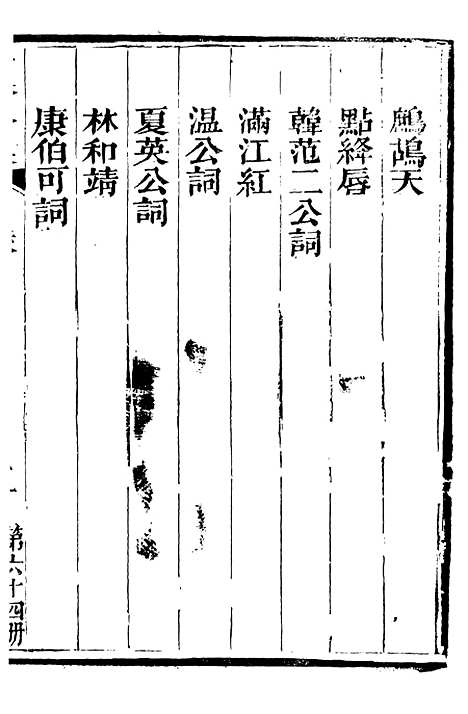 鷓鴣天
點絳唇
韓范二公詞
滿江紅
温公詞
夏英公詞
林和靖
康伯可詞
第六十四册